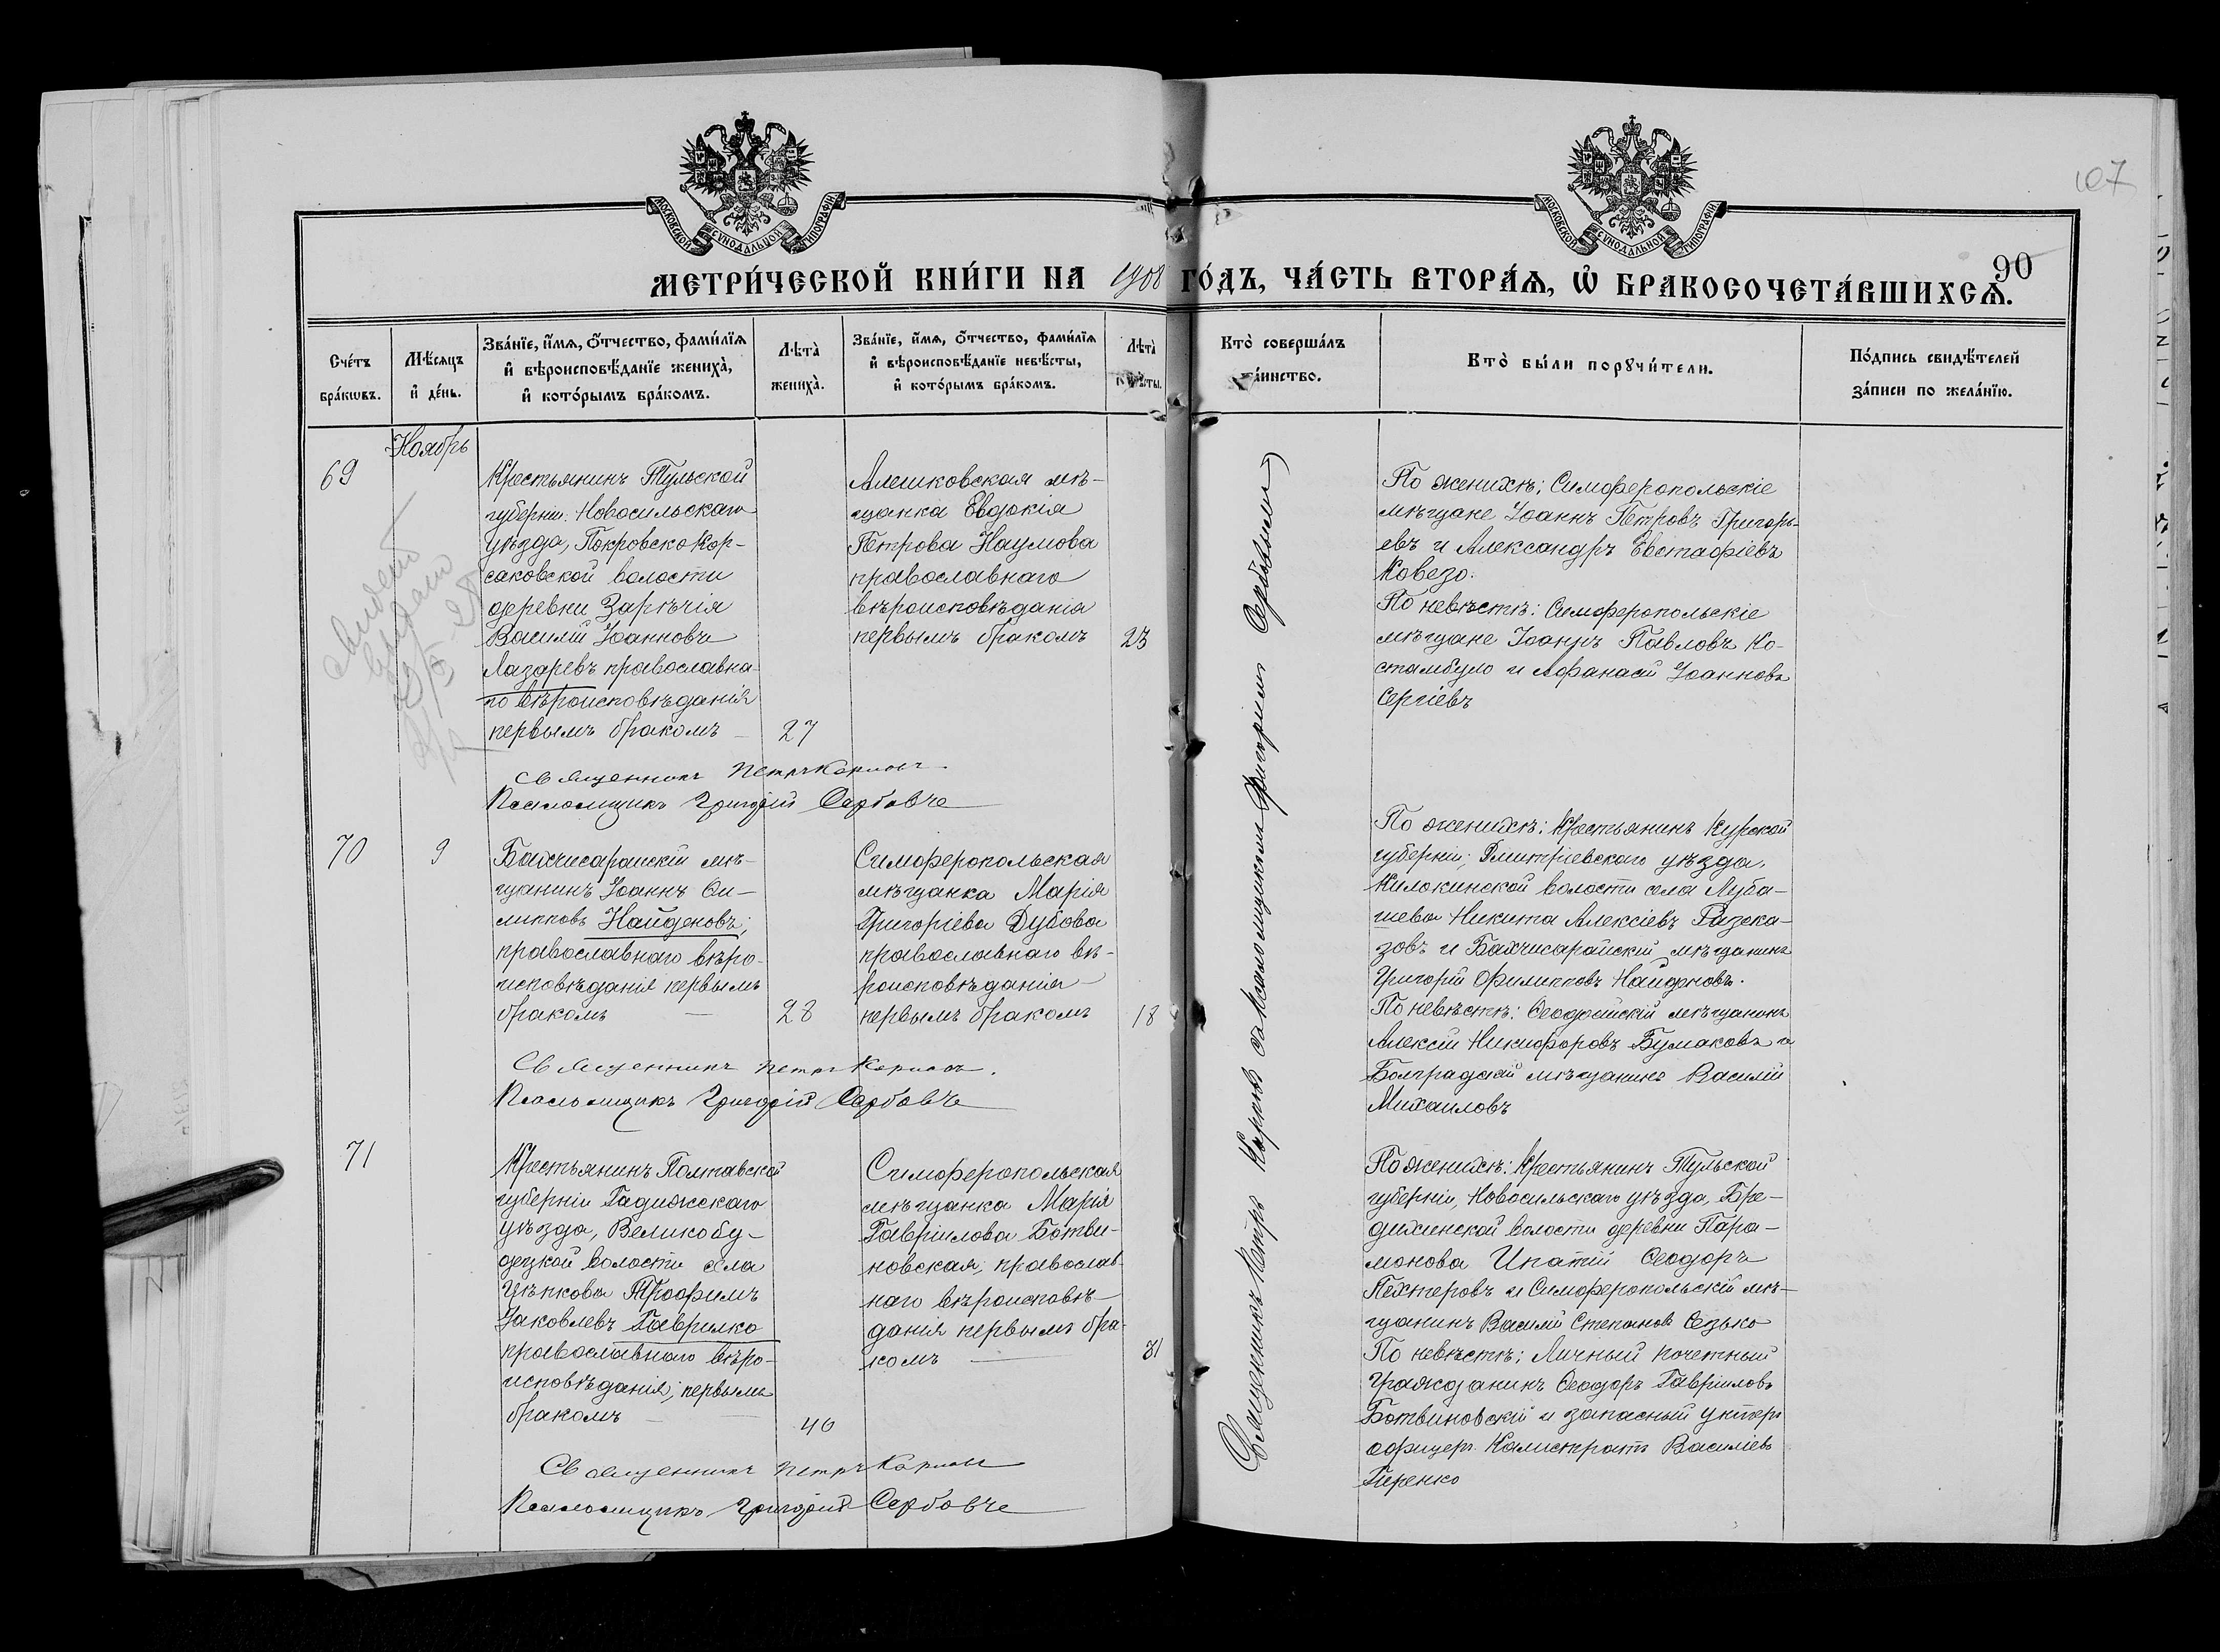 107
90
МОСКОВСКОЙ СѴНОДАЛЬНОЙ ТИПОГРАФІИ
МОСКОВСКОЙ СѴНОДАЛЬНОЙ ТИПОГРАФІИ
МЕТРИ́ЧЕСКОЙ КНИ́ГИ НА 1908 ГО́ДЪ, ЧА́СТЬ ВТОРА́Ѧ, Ѡ҆ БРАКОСОЧЕТА́ВШИХСѦ.
Сче́тъ
бра́кѡвъ.
Мѣ́сѧцъ
и҆ де́нь.
Зва́нїе, и҆́мѧ, ѻ҆́тчество, фами́лїѧ
и҆ вѣроисповѣ́данїе жениха̀,
и҆ кото́рымъ бра́комъ.
Лѣта̀
жениха̀.
Зва́нїе, и҆́мѧ, ѻ҆́тчество, фами́лїѧ
и҆ вѣроисповѣ́данїе невѣ́сты,
и҆ кото́рымъ бра́комъ.
Лѣта̀
невѣ́сты.
Кто̀ соверша́лъ
та́инство.
Кто̀ бы́ли порꙋчи́тели.
По́дпись свидѣ́телей
за́писи по жела́нїю.
Ноябрь
69
Крестьянинъ Тульской
губерніи Новосильскаго
уѣзда, Покровско Кор-
саковской волости
деревни Зарѣчія
Василій Іоанновъ
Лазаревъ православна-
го вѣроисповѣданія
первымъ бракомъ
27
Алешковская мѣ-
щанка Евдокія
Петрова Наумова
православнаго
вѣроисповѣданія
первымъ бракомъ
23
По женихѣ: Симферопольскіе
мѣщане Іоаннъ Петровъ Григорь-
евъ и Александръ Евстафіевъ
Ковезо.
По невѣстѣ: Симферопольскіе
мѣщане Іоаннъ Павловъ Ко-
стамбуло и Афанасій Іоанновъ
Сергіевъ
Священникъ Петръ
Псаломщикъ Григорій
70
9
Бахчисарайскій мѣ-
щанинъ Іоаннъ Фи-
липповъ Найденовъ,
православнаго вѣро-
исповѣданія первымъ
бракомъ
28
Симферопольская
мѣщанка Марія
Григоріева Дубова
православнаго вѣ-
роисповѣданія
первымъ бракомъ
18
По женихѣ: Крестьянинъ Курской
губерніи, Дмитріевскаго уѣзда,
волости села Луба-
шева Никита Алексіевъ Разска-
зовъ и Бахчисарайскій мѣщанинъ
Григорій Филипповъ Найденовъ.
По невѣстѣ: Ѳеодосійскій мѣщанинъ
Алексій Никифоровъ Бумаковъ и
Болградскій мѣщанинъ Василій
Михаиловъ
Священникъ Петръ
Псаломщикъ Григорій
71
Крестьянинъ Полтавской
губерніи Гадячскаго
уѣзда, Великобу-
децкой волости села
Цѣпкова Трофимъ
Іаковлевъ Гаврилко
православнаго вѣро-
исповѣданія, первымъ
бракомъ
40
Симферопольская
мѣщанка Марія
Гавріилова Ботви-
новская, православ-
наго вѣроисповѣ-
данія первымъ бра-
комъ
31
По женихѣ: Крестьянинъ Тульской
губерніи, Новосильскаго уѣзда, Бре-
дихинской волости деревни Пара-
монова Ипатій Ѳеодоръ
Пехтеровъ и Симферопольскій мѣ-
щанинъ Василій Степановъ Сезько
По невѣстѣ: Личный почетный
гражданинъ Ѳеодоръ Гавріиловъ
Ботвиновскій и запасный унтеръ
офицеръ Калистратъ Василіевъ
Гиренко
Священникъ Петръ
Псаломщикъ Григорій
Священникъ Петръ съ псаломщикомъ Григоріемъ